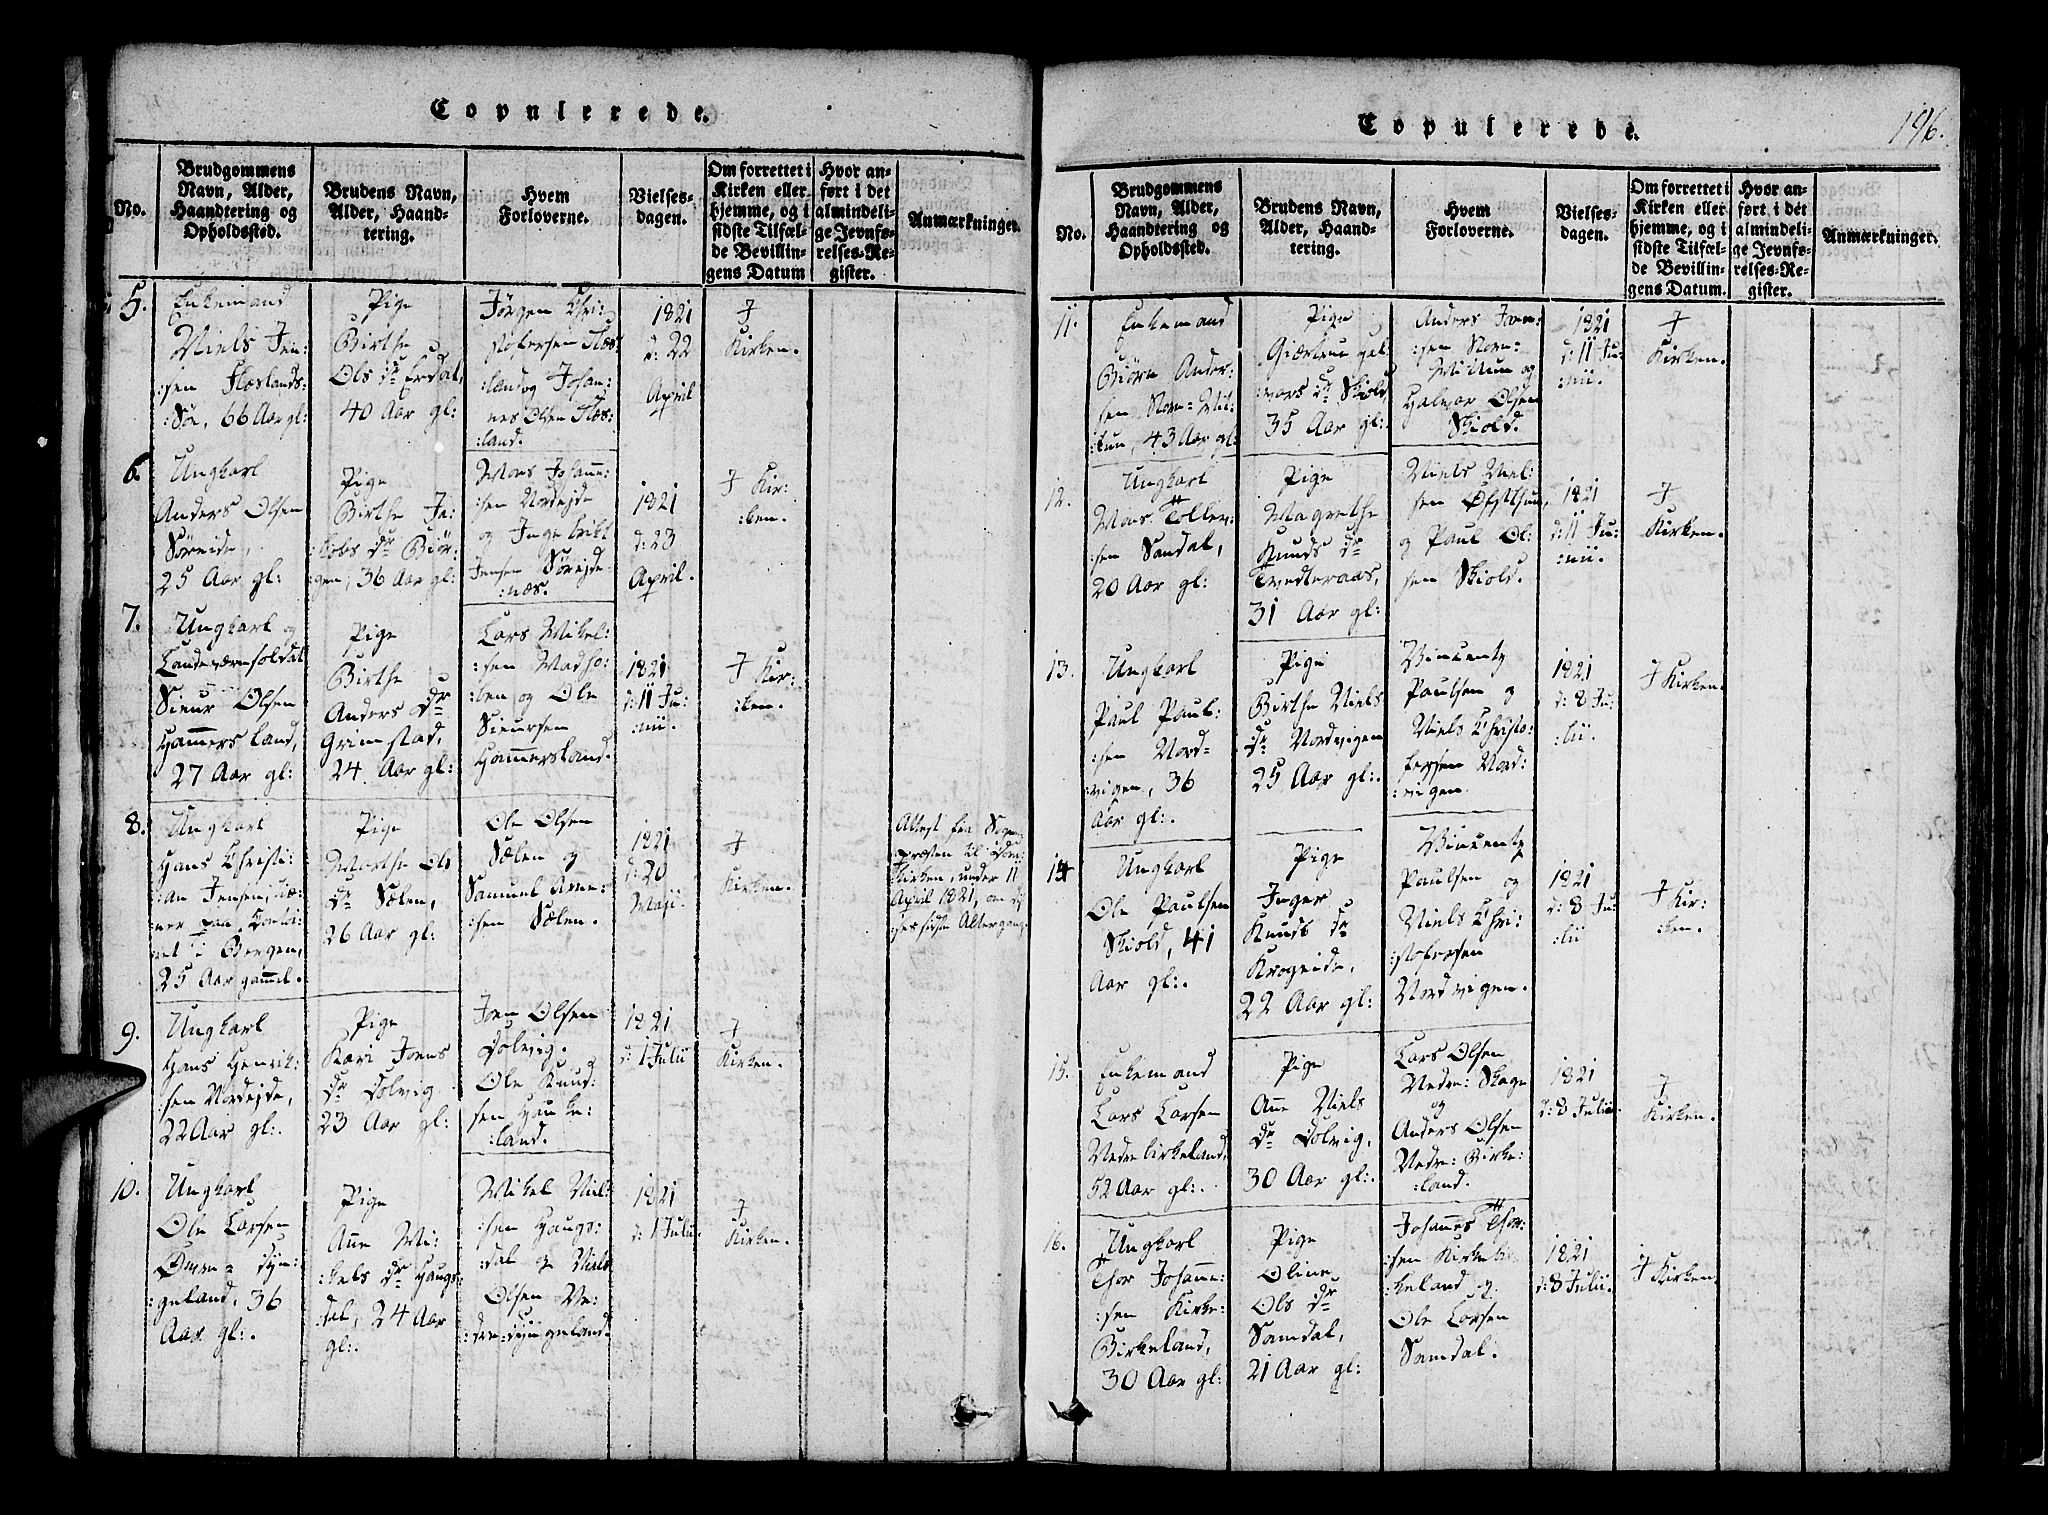 Copulerede.
No.
Brudgommens
Navn, Alder,
Haandtering og
Opholdssted.
Brudens Navn,
Alder, Haand-
tering.
Hvem
Forloverne.
Vielses-
dagen.
Om forrettet i
Kirken eller
hjemme, og i
sidste Tilfæl-
de Bevillin-
gens Datum
Hvor an-
ført i det
almindeli-
ge Jevnfø-
relses-Re-
gister.
Anmærkninger.
5.
Enkemand
Niels Jen:
:sen Flæslands:
:Sør, 66 Aar gl:
Pige
Birthe
Ols dr Erdal,
40 Aar gl:
Jörgen Chri:
stofersen Flæs:
:land og Johan:
nes Olsen Flæs:
:land.
1821
d: 22
April
I
Kirken.
6.
Ungkarl
Anders Olsen
Söreide,
25 Aar gl:
Pige
Birthe Ja:
:kobs dr Biör:
gen, 36 Aar gl:
Mons Johane:
:sen Nordejde
og Ingebrikt
Jensen Sörejde
:næs.
1821
d: 23
April.
I Kir:
:ken.
7.
Ungkarl og
Landeværnsoldat
Sieur Olsen
Hamersland,
27 Aar gl:
Pige
Birthe
Anders Dr
Grimstad,
24 Aar gl:
Lars Mikel:
:sen Madho:
:len og Ole
Sieursen
Hamersland.
1821
d: 11 Ju:
:nii.
I Kir:
:ken.
8.
Ungkarl
Hans Christi:
:an Jensen,
i Bergen,
25 Aar gamel.
Pige
Marthe Ols
dr Sælen,
26 Aar gl:
Ole Olsen
Sælen og
Samuel Arne:
:sen Sælen.
1821
d: 20
Maji.
I
Kirken.
Attest fra Sogne
præsten til Dom:
Kirken, under 11
April 1821, om
sidste Altergang.
9.
Ungkarl
Hans Henrik:
:sen Nordejde,
22 Aar gl:.
Pige
Kari Joens
dr Dolvig
23 Aar gl:
Joen Olsen
Dolvig.
Ole Knud:
sen Hauke:
:land.
1821
d: 1 Julii
I
Kirken.
10.
Ungkarl
Ole Larsen
Övre= Dyn:
:geland, 36
Aar gl:.
Pige
Ane Mi:
:kels dr Haugs:
dal, 24 Aar
gl:.
Mikel Niel:
:sen Haugs:
dal & Niels
Olsen Ne:
:dre:dyngeland.
1821
d: 1 Julii.
I
Kirken.
Copulerede.
196.
No.
Brudgommens
Navn, Alder,
Haandtering og
Opholdssted.
Brudens Navn,
Alder, Haand-
tering.
Hvem
Forloverne.
Vielses-
dagen.
Om forrettet i
Kirken eller
hjemme, og i
sidste Tilfæl-
de Bevillin-
gens Datum.
Hvor an-
ført i det
almindeli-
ge Jevnfø-
relses-Re-
gister.
Anmærkninger.
11.
Enkemand
Biörn Ander:
sen Store= Mil:
:tun, 43 Aar gl:
Pige
Hal:
:vors dr Skiold,
35 Aar gl:.
Anders Joen:
:sen
Miltun og
Halvor Olsen
Skiold.
1821
d: 11 Ju:
:nii.
I
Kirken.
12.
Ungkarl
Mons Tollev:
:sen Sandal,
20 Aar gl:
Pige
Magrethe
Knuds dr
Tvedteraas,
31 Aar gl:
Niels Niel:
sen Öfsthun,
og Paul Ol:
sen Skiold.
1821
d: 11 Ju:
:nii.
I
Kirken.
13.
Ungkarl
Paul Paul:
:sen Nord=
:vigen, 36
Aar gl:.
Pige
Birthe Niels
dr Nordvigen
25 Aar gl:.
Vincentz
Paulsen og
Niels Christo:
fersen Nord:
:vigen.
1821
d: 8 Ju:
:lii.
I Kirken.
14
Ungkarl
Ole Paulsen
Skiold, 41
Aar gl:.
Pige
Inger
Knuds dr
Krogeide,
22 Aar gl:
Vincentz
Paulsen og
Niels Chri:
:stofersen
Nordvigen.
1821
d: 8 Ju:
:lii
I Kir:
:ken.
15.
Enkemand
Lars Larsen
Nedre birkeland,
52 Aar gl:.
Pige
Ane Niels
dr Dolvig,
30 Aar gl:.
Lars Olsen
Nedre: Skage
og
Anders Olsen
Nedre: Birke:
:land.
1821
d: 8 Julii.
I
Kirken.
16.
Ungkarl
Thor Johane:
:sen Kirke:
Birkeland,
30 Aar gl:
Pige
Oline
Ols dr
Samdal,
21 Aar gl:
Johanes Thor:
:sen Kirke bir:
keland og
Ole Larsen
Samdal.
1821
d: 8 Julii.
I Kirken